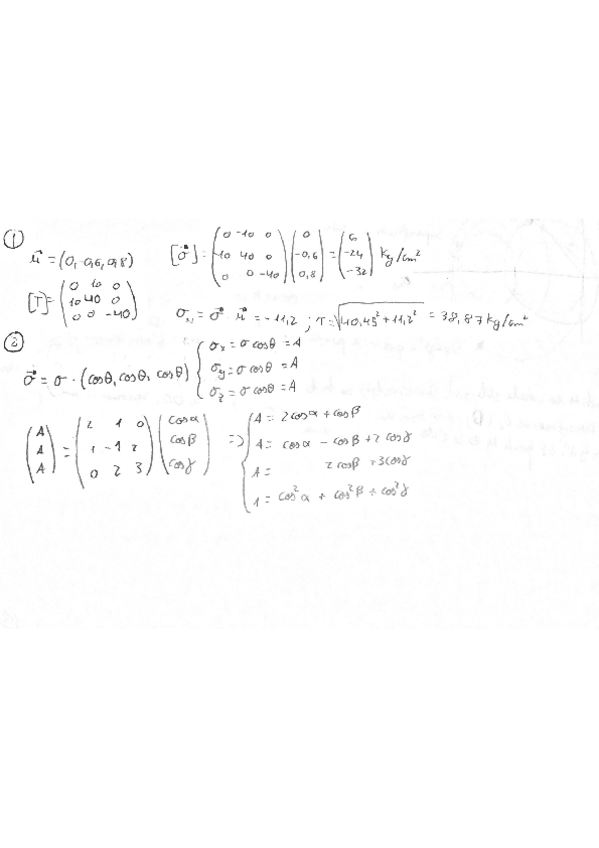 ①
u⃗ = (0, -0,6, 0,8) [σ⃗] = (0 -10 0; -10 40 0; 0 0 -40) (0; -0,6; 0,8) = (6; -24; -32) kg/cm²
[T] = (0 10 0; 10 40 0; 0 0 -40) σN = σ⃗ · u⃗ = -11,2 ; τ = √(40,45² + 11,2²) = 38,87 kg/cm²
②
σ⃗ = σ · (cosθ, cosθ, cosθ) { σx = σ cosθ = A
σy = σ cosθ = A
σz = σ cosθ = A
(A; A; A) = (2 1 0; 1 -1 2; 0 2 3) (cosα; cosβ; cosγ) => { A = 2cosα + cosβ
A = cosα - cosβ + 2 cosγ
A = 2 cosβ + 3cosγ
1 = cos²α + cos²β + cos²γ